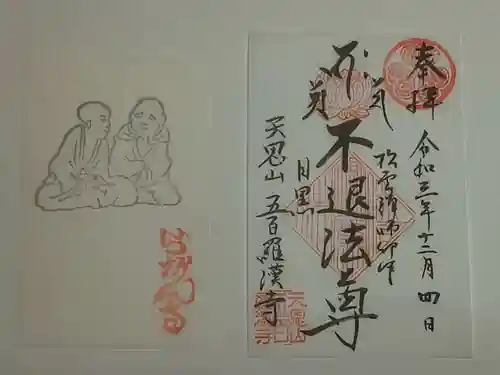 奉拝
令和三年十二月四日
不退法尊
松雲禅師御作
目黒
天恩山 五百羅漢寺